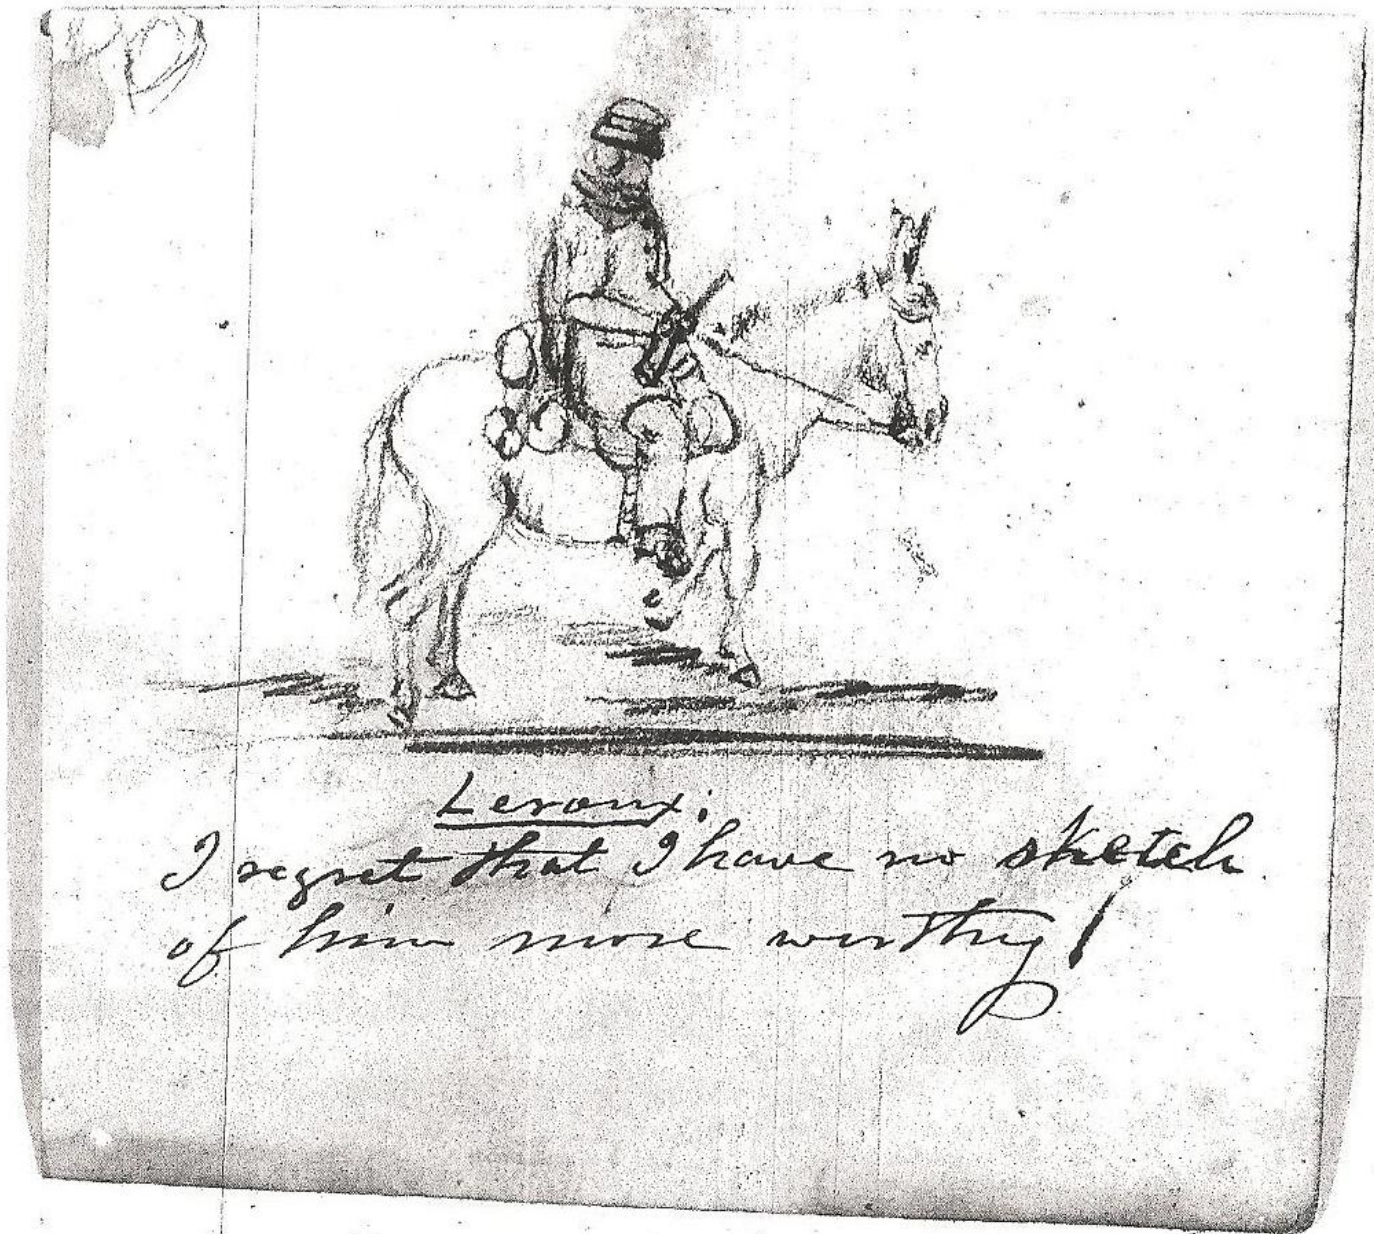 Leroux;
I regret that I have no sketch
of him more worthy!